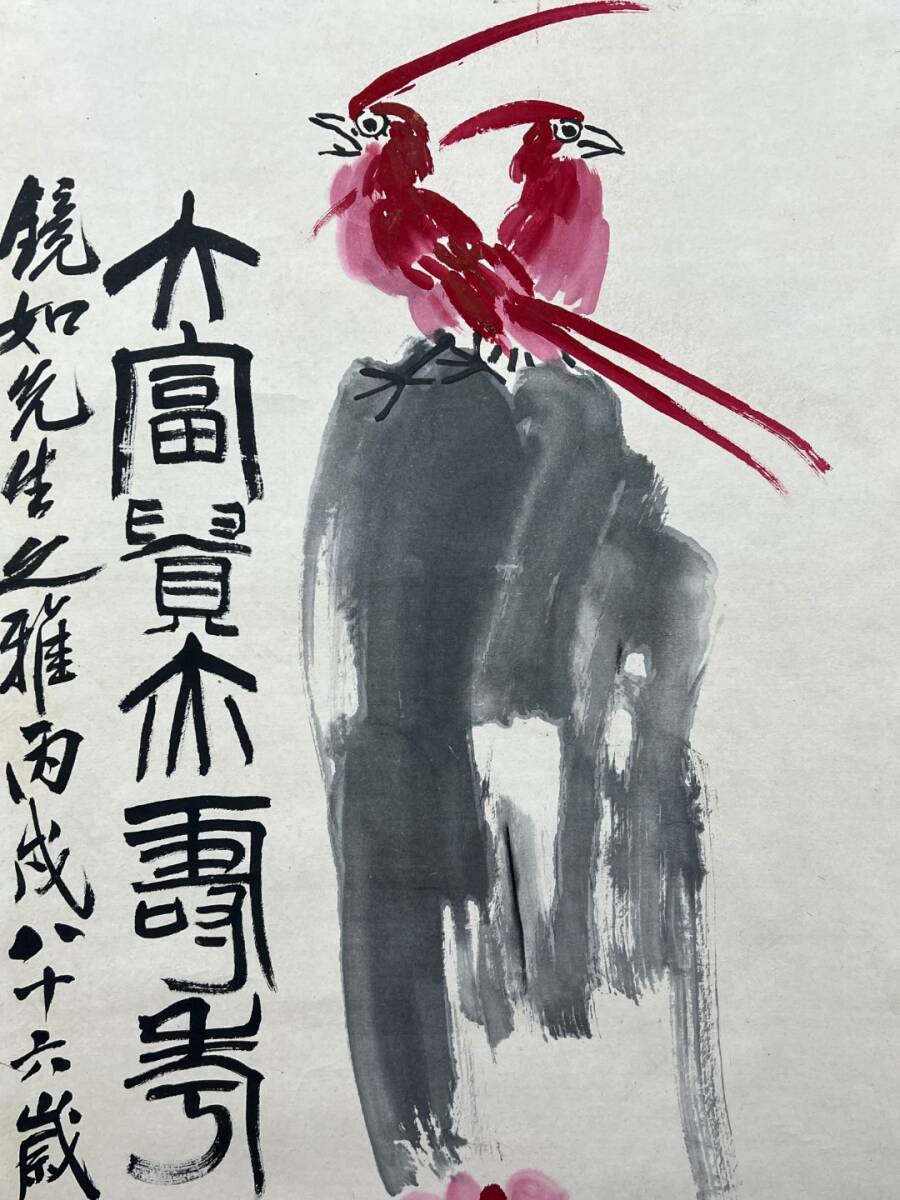 大富貴亦壽考
鏡如先生之雅丙戌八十六歲